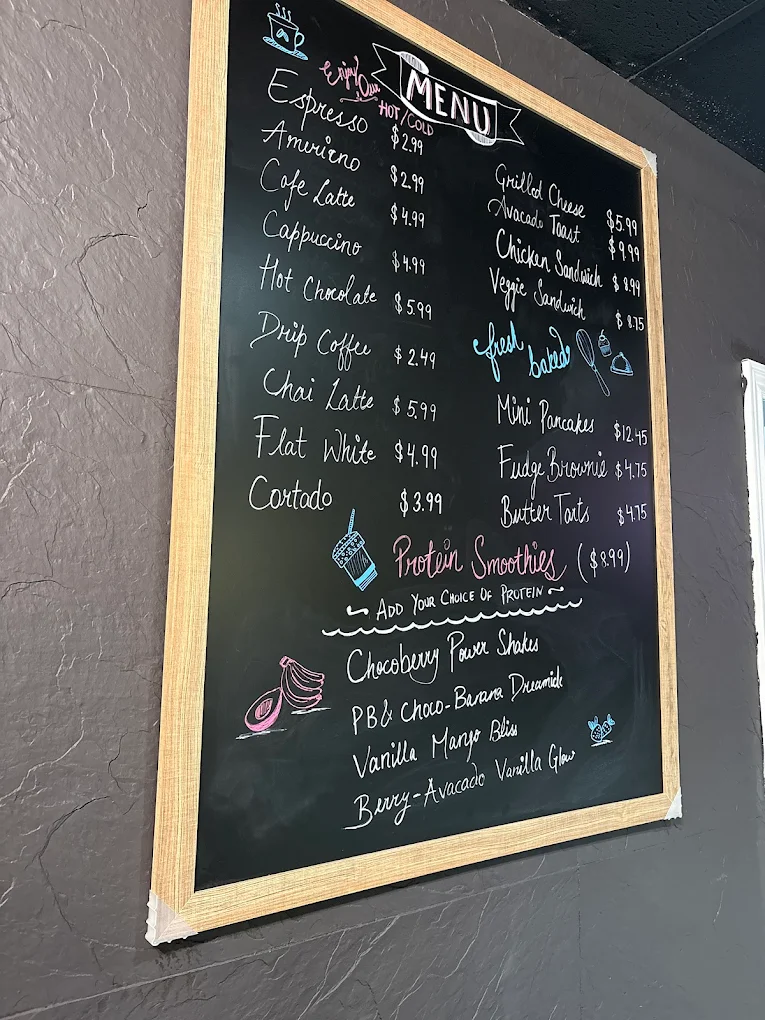 Enjoy Our
MENU
HOT/COLD
Espresso $2.99
Americno $2.99
Cafe Latte $4.99
Cappuccino $4.99
Hot Chocolate $5.99
Drip Coffee $2.49
Chai Latte $5.99
Flat White $4.99
Cortado $3.99
Grilled Cheese $5.99
Avacado Toast $9.99
Chicken Sandwich $8.99
Veggie Sandwich $8.75
fresh baked
Mini Pancakes $12.45
Fudge Brownie $4.75
Butter Tarts $4.75
Protein Smoothies ($8.99)
ADD YOUR CHOICE OF PROTEIN
Chocoberry Power Shakes
PB & Choco-Banana Dreamide
Vanilla Mango Bliss
Berry-Avacado Vanilla Glow